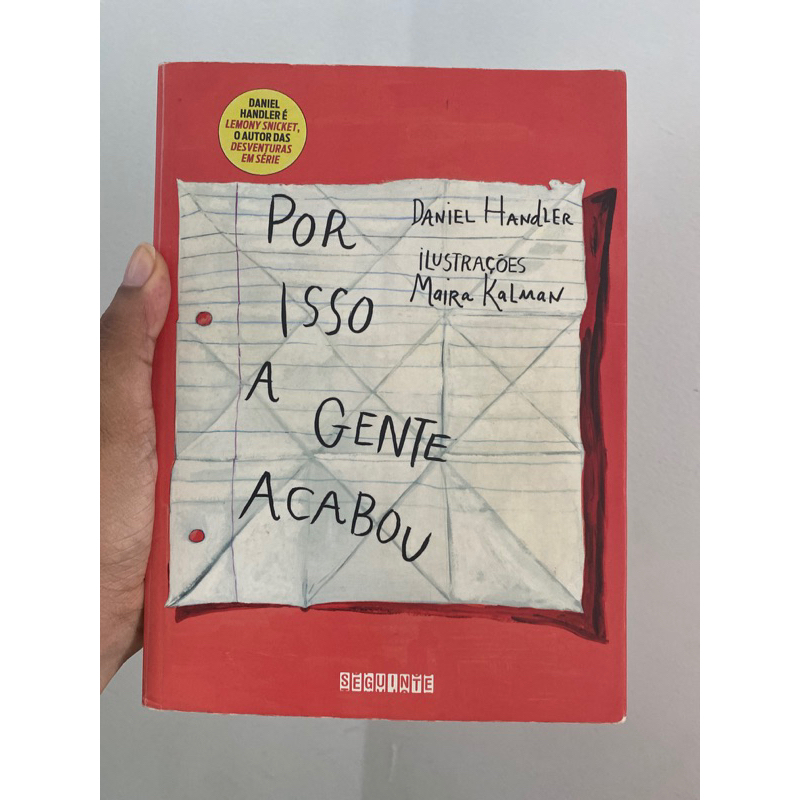 DANIEL
HANDLER É
LEMONY SNICKET,
O AUTOR DAS
DESVENTURAS
EM SÉRIE
POR
ISSO
A
GENTE
ACABOU
DANIEL HANDLER
ILUSTRAÇÕES
MAIRA KALMAN
SEGUINTE